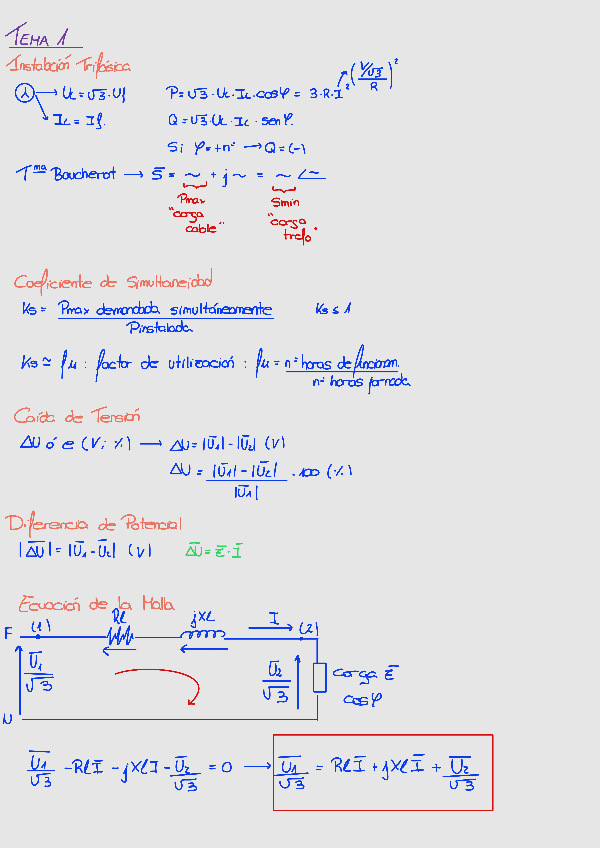 TEMA 1
Instalación Trifásica
⅄ → UL = √3 · Uf    P = √3 · UL · IL · cos φ = 3 · R · I² (V/√3 / R)²
IL = If.    Q = √3 · UL · IL · sen φ.
Si φ = +n° → Q = (-)
Tma Boucherot → S̅ = ~ + j ~ = ~ ∠~
Pmax    Smin
"carga cable"    "carga trafo"
Coeficiente de Simultaneidad
Ks = Pmax demandada simultáneamente / Pinstalada    Ks ≤ 1
Ks ≃ fu : factor de utilización : fu = nº horas de funcionam. / nº horas jornada
Caída de Tensión
ΔU ó e (V; %) → ΔU = |U̅1| - |U̅2| (V)
ΔU = |U̅1| - |U̅2| / |U̅1| · 100 (%)
Diferencia de Potencial
|ΔU̅| = |U̅1 - U̅2| (V)    ΔU̅ = Z̅ · I̅
Ecuación de la Malla
F (1) Rl jXl I (2)
U̅1/√3    U̅2/√3    carga Z̅
cos φ
N
U̅1/√3 - Rl I̅ - jXl I - U̅2/√3 = 0 → U̅1/√3 = Rl I̅ + jXl I̅ + U̅2/√3